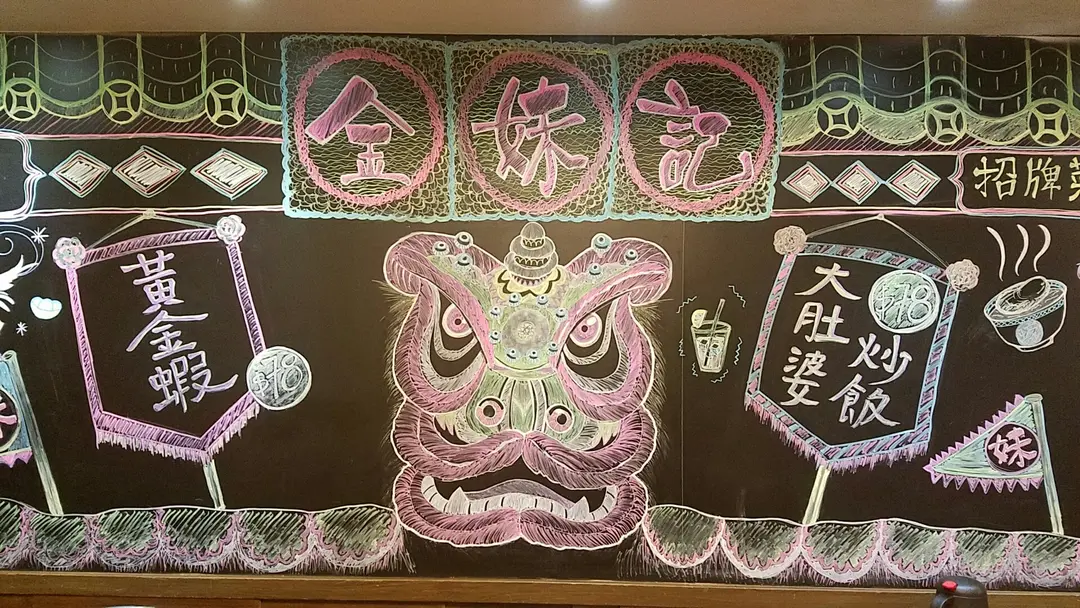 金妹記
招牌菜
黃金蝦
$78
大肚婆
炒飯
$78
妹
妹